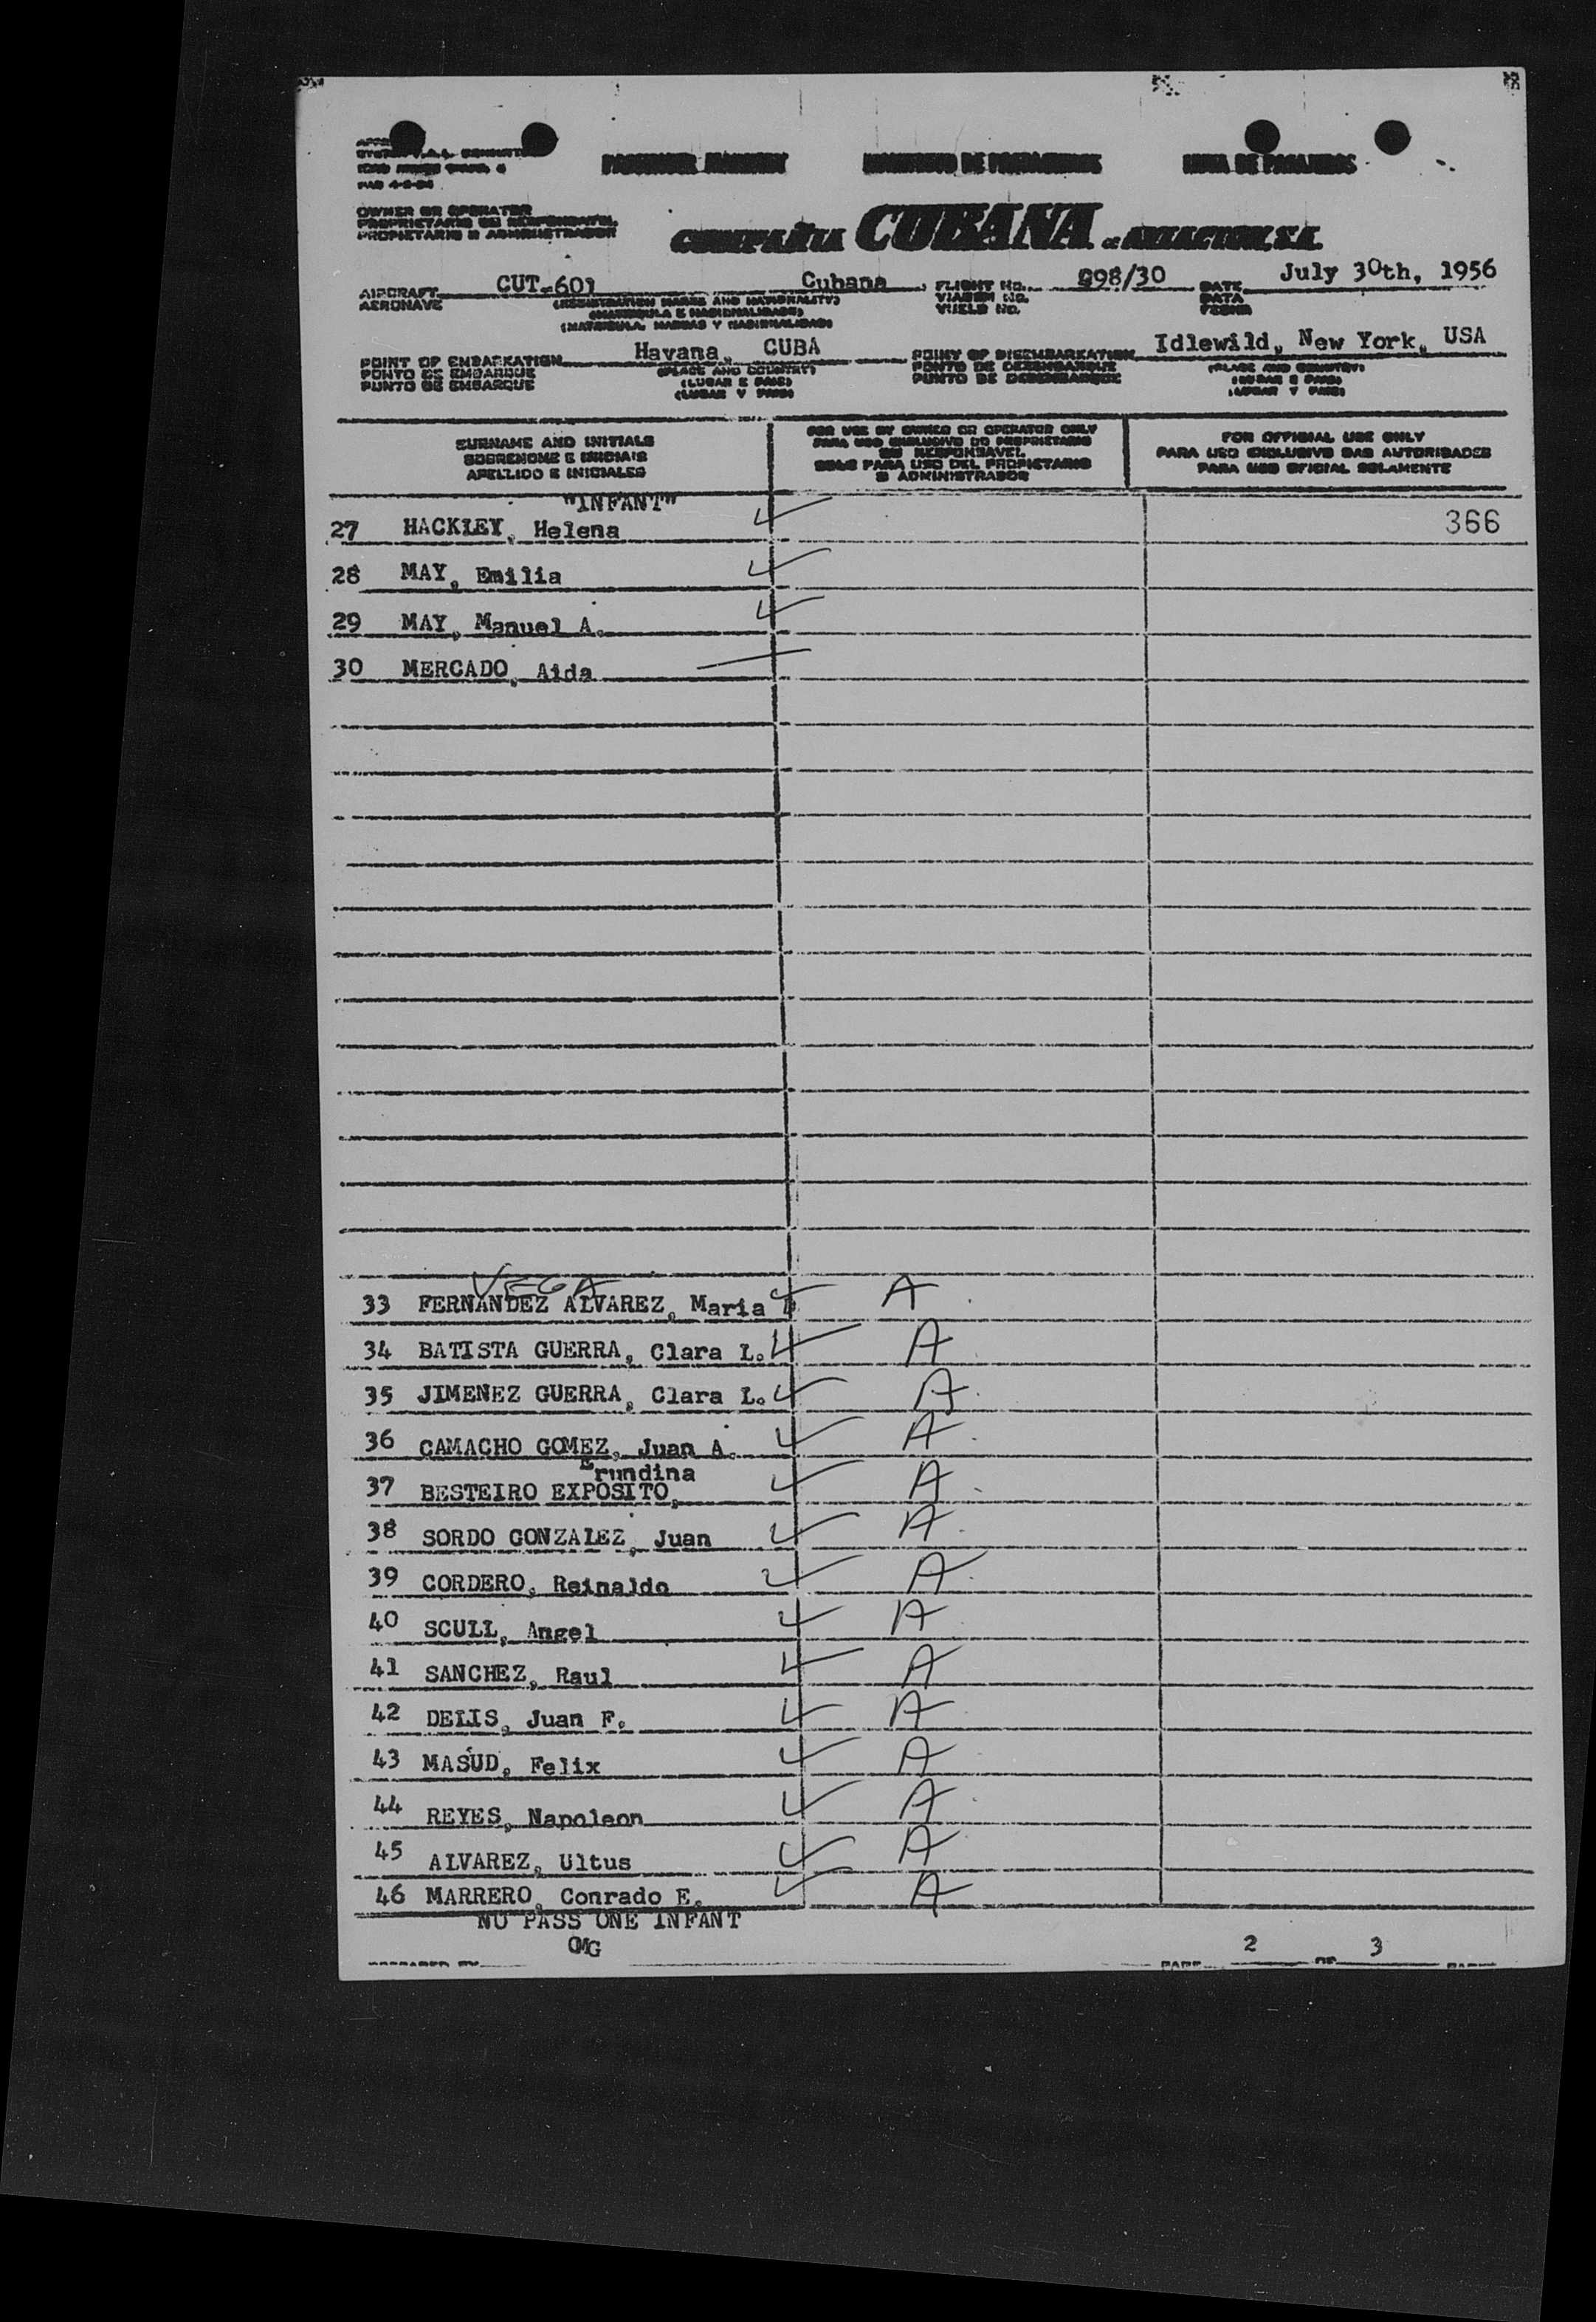 PASSENGER MANIFEST MANIFESTO DE PASSAGEIROS LISTA DE PASAJEROS
OWNER OR OPERATOR
PROPRIETARIO OU RESPONSAVEL
PROPIETARIO O ADMINISTRADOR
COMPAÑIA CUBANA de AVIACION, S.A.
AIRCRAFT CUT-601 Cubana FLIGHT No. 998/30 DATE July 30th, 1956
AERONAVE (REGISTRATION MARKS AND NATIONALITY) VIAGEM No. DATA
(MATRICULA E NACIONALIDADE) VUELO No. FECHA
(MATRICULA, MARCAS Y NACIONALIDAD)
POINT OF EMBARKATION Havana, CUBA POINT OF DISEMBARKATION Idlewild, New York, USA
PONTO DE EMBARQUE (PLACE AND COUNTRY) PONTO DE DESEMBARQUE (PLACE AND COUNTRY)
PUNTO DE EMBARQUE (LUGAR E PAIS) PUNTO DE DESEMBARQUE (LUGAR E PAIS)
(LUGAR Y PAIS) (LUGAR Y PAIS)
SURNAME AND INITIALS
SOBRENOME E INICIAIS
APELLIDO E INICIALES
FOR USE BY OWNER OR OPERATOR ONLY
PARA USO EXCLUSIVO DO PROPRIETARIO
OU RESPONSAVEL
SOLO PARA USO DEL PROPIETARIO
O ADMINISTRADOR
FOR OFFICIAL USE ONLY
PARA USO EXCLUSIVO DAS AUTORIDADES
PARA USO OFICIAL SOLAMENTE
"INFANT"
27 HACKLEY, Helena 366
28 MAY, Emilia
29 MAY, Manuel A.
30 MERCADO, Aida
VEGA
33 FERNANDEZ ALVAREZ, Maria A
34 BATISTA GUERRA, Clara L. A
35 JIMENEZ GUERRA, Clara L. A
36 CAMACHO GOMEZ, Juan A. A
Erundina
37 BESTEIRO EXPOSITO, A
38 SORDO GONZALEZ, Juan A
39 CORDERO, Reinaldo A
40 SCULL, Angel A
41 SANCHEZ, Raul A
42 DELIS, Juan F. A
43 MASUD, Felix A
44 REYES, Napoleon A
45 ALVAREZ, Ultus A
46 MARRERO, Conrado E. A
NU PASS ONE INFANT
OMG
PREPARED BY PAGE 2 OF 3